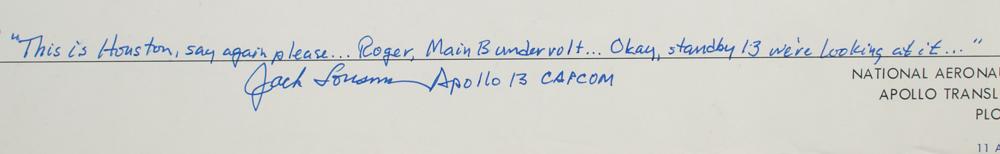 "This is Houston, say again please... Roger, Main B undervolt... Okay, standby 13 we're looking at it..."
Jack Lousma Apollo 13 CAPCOM
NATIONAL AERONA
APOLLO TRANSL
PLO
11 A